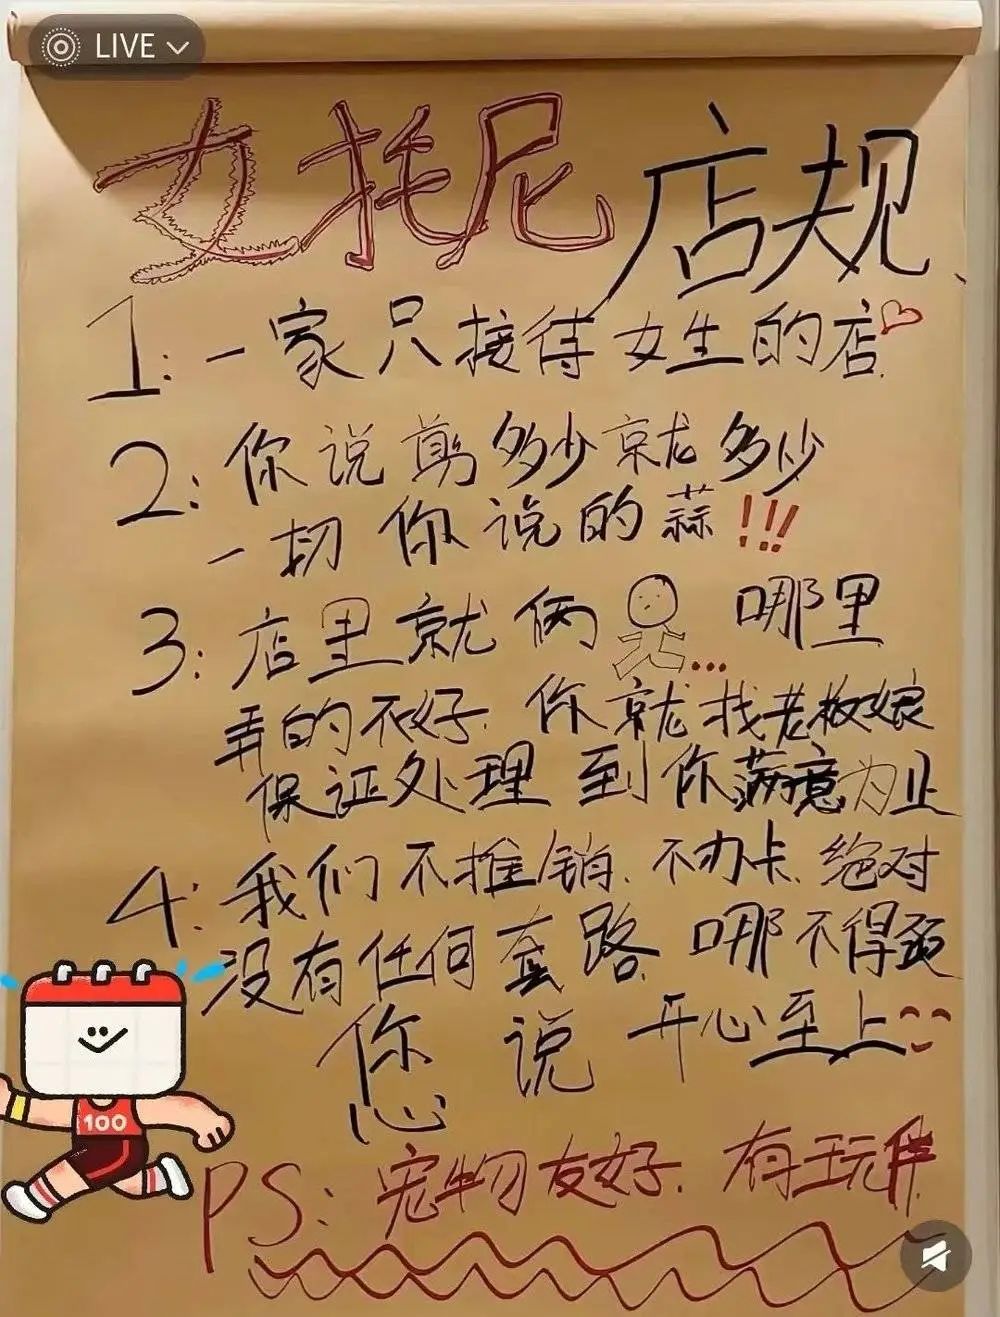 LIVE
女托尼 店规
1: 一家只接待女生的店
2: 你说剪多少就多少
一切 你说的蒜!!!
3: 店里就俩 ... 哪里
弄的不好 你就找老板娘
保证处理 到你满意为止
4: 我们不推销.不办卡.绝对
没有任何套路 哪不得劲
您 说 开心至上
PS: 宠物友好. 有玩伴
100